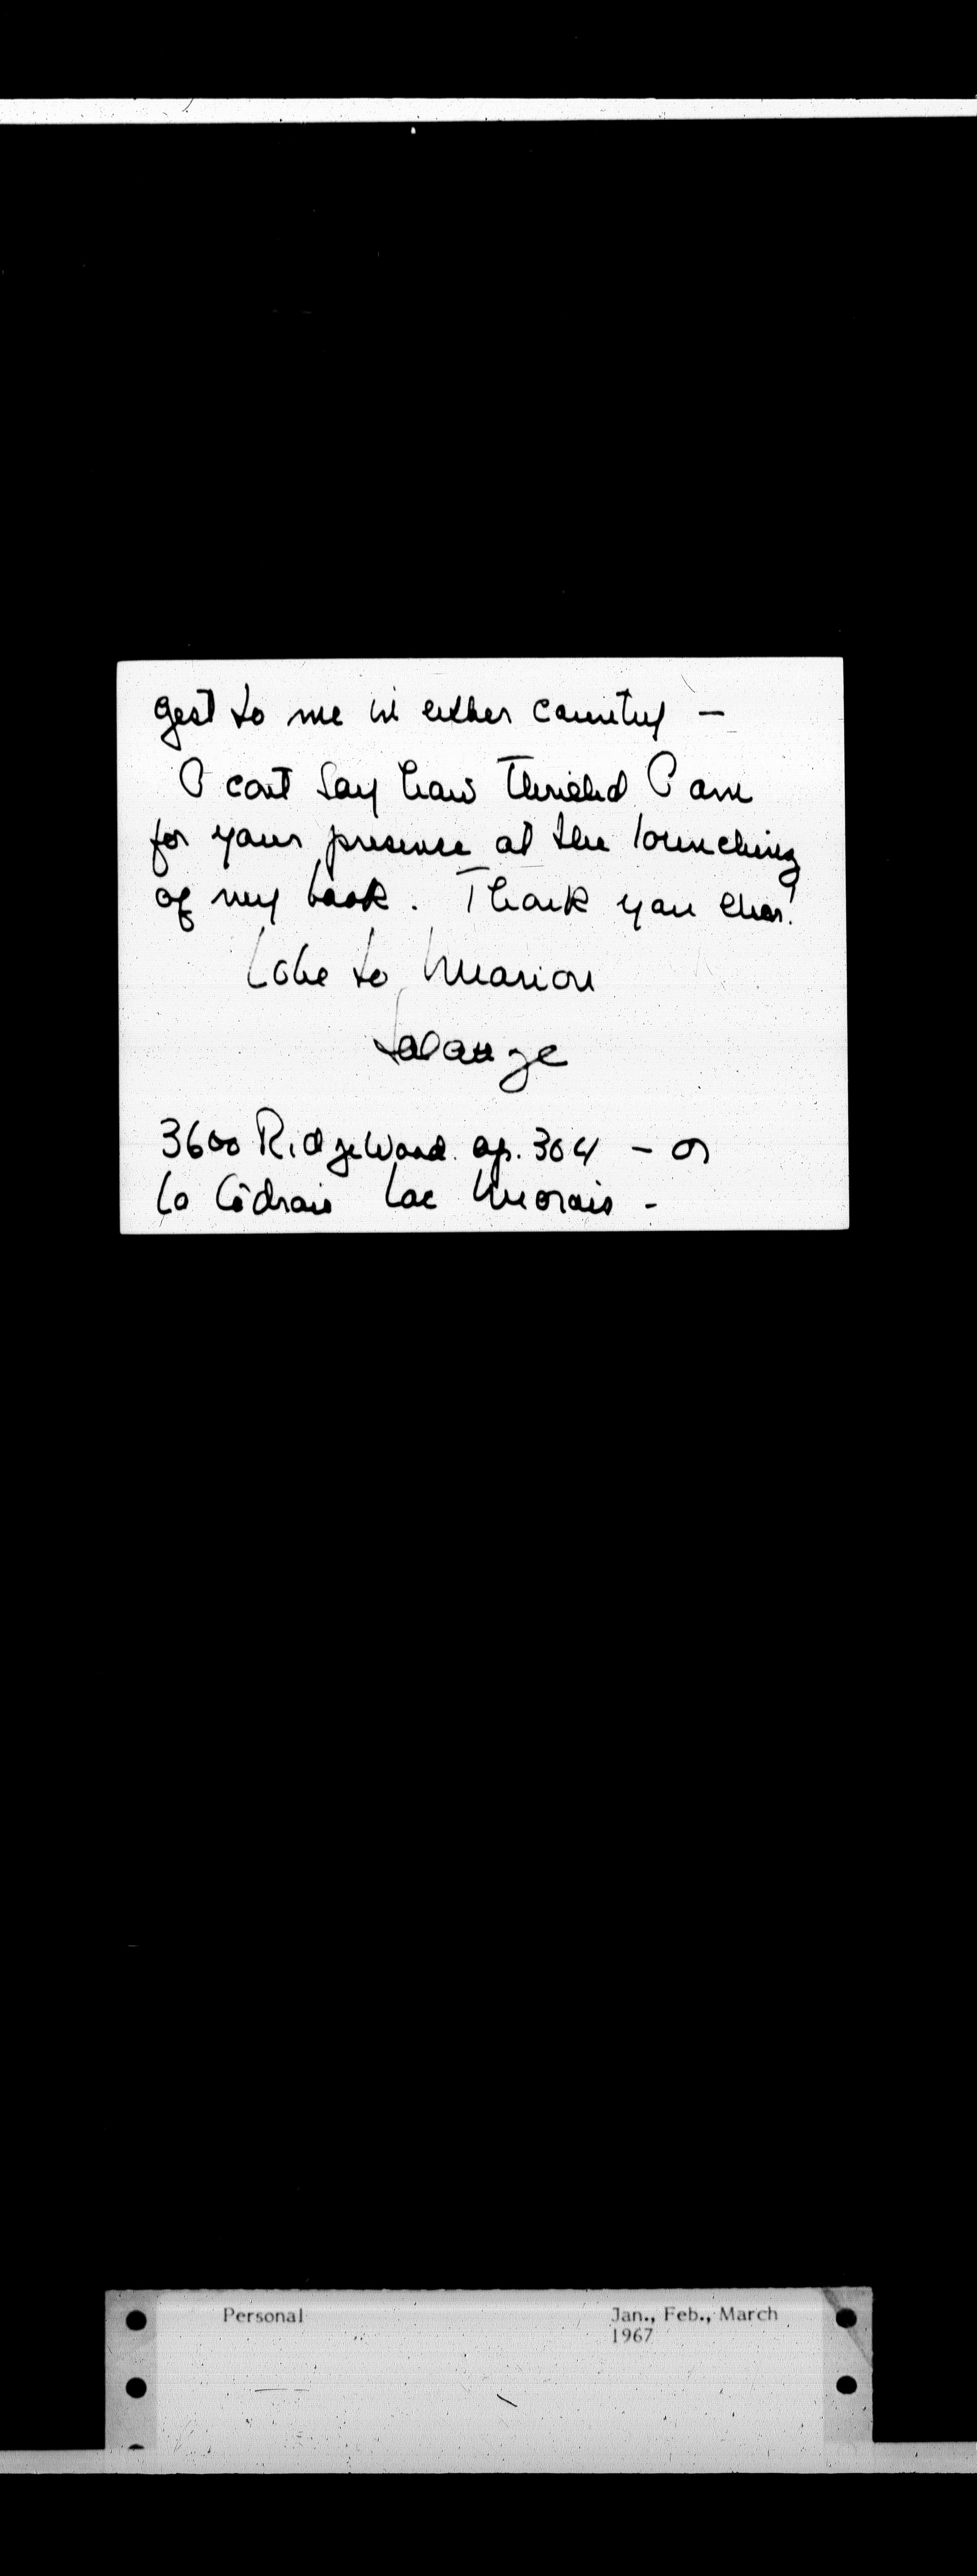 gest to me in either country —
I cant say how thrilled I am
for your presence at the launching
of my book. Thank you cher!
Love to Marion
Solange
3600 Ridgewood. ap. 304 – or
La Côdraie Lac Marois -
Personal Jan., Feb., March
1967